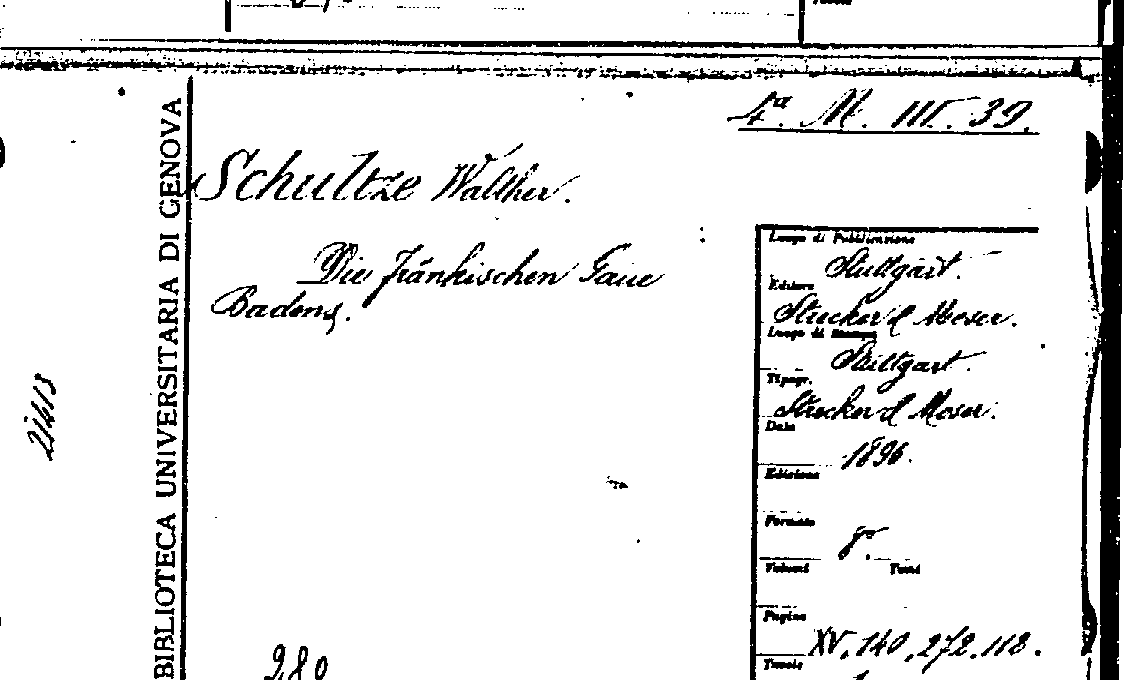 4ª. M. III. 39.
Schultze Walther.
Die Fränkischen Gaue
Badens.
BIBLIOTECA UNIVERSITARIA DI GENOVA
21413
Luogo di Pubblicazione
Stuttgart.
Editore
Strecker & Moser.
Luogo di Stampa
Stuttgart.
Tipogr.
Strecker & Moser.
Data
1896.
Edizione
Formato
8°.
Volumi Tomi
Pagine
XV, 140, 272, 118.
Tavole
280